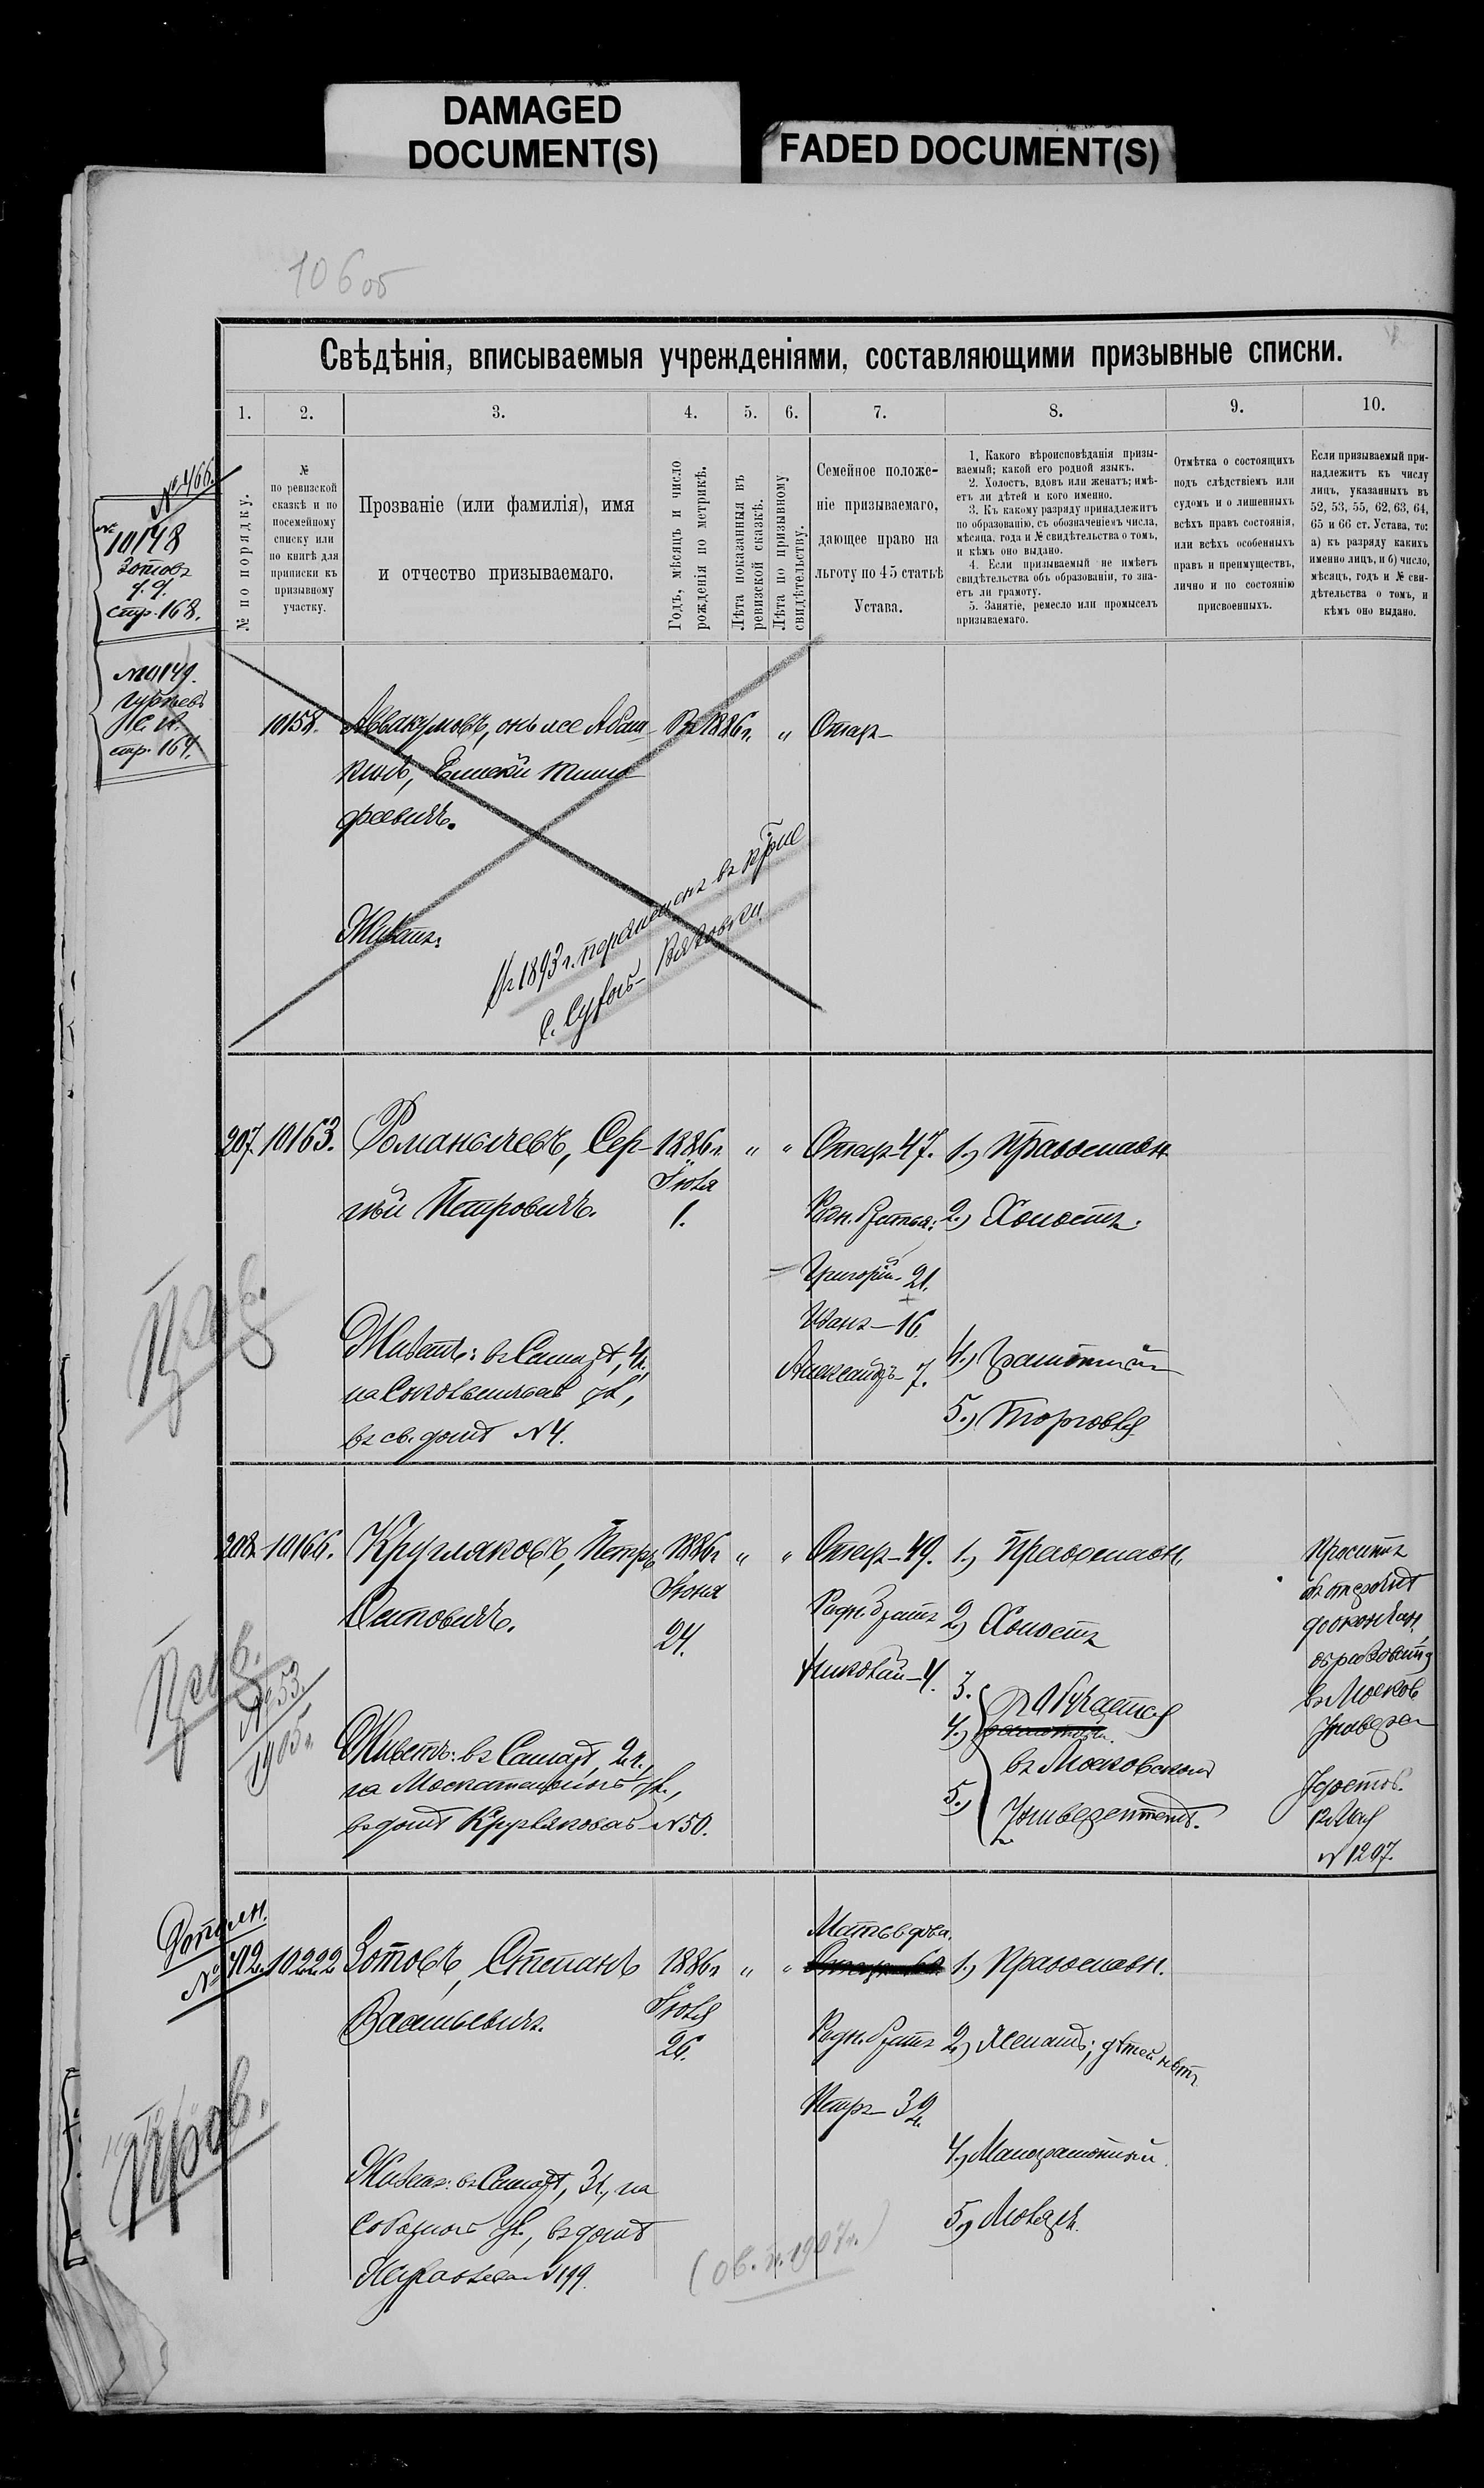 DAMAGED
DOCUMENT(S)
FADED DOCUMENT(S)
106 об
Свѣдѣнія, вписываемыя учрежденіями, составляющими призывные списки.
1.
2.
3.
4.
5.
6.
7.
8.
9.
10.
№ по порядку.
№
по ревизской
сказкѣ и по
посемейному
списку или
по книгѣ для
приписки къ
призывному
участку.
Прозваніе (или фамилія), имя
и отчество призываемаго.
Годъ, мѣсяцъ и число
рожденія по метрикѣ.
Лѣта показанныя въ
ревизской сказкѣ.
Лѣта по призывному
свидѣтельству.
Семейное положе-
ніе призываемаго,
дающее право на
льготу по 45 статьѣ
Устава.
1. Какого вѣроисповѣданія призы-
ваемый; какой его родной языкъ.
2. Холостъ, вдовъ или женатъ; имѣ-
етъ ли дѣтей и кого именно.
3. Къ какому разряду принадлежитъ
по образованію, съ обозначеніемъ числа,
мѣсяца, года и № свидѣтельства о томъ,
и кѣмъ оно выдано.
4. Если призываемый не имѣетъ
свидѣтельства объ образованіи, то зна-
етъ ли грамоту.
5. Занятіе, ремесло или промыселъ
призываемаго.
Отмѣтка о состоящихъ
подъ слѣдствіемъ или
судомъ и о лишенныхъ
всѣхъ правъ состоянія,
или всѣхъ особенныхъ
правъ и преимуществъ,
лично и по состоянію
присвоенныхъ.
Если призываемый при-
надлежитъ къ числу
лицъ, указанныхъ въ
52, 53, 55, 62, 63, 64,
65 и 66 ст. Устава, то:
а) къ разряду какихъ
именно лицъ, и б) число,
мѣсяцъ, годъ и № сви-
дѣтельства о томъ, и
кѣмъ оно выдано.
№ 466.
№ 10148
Зотовъ
стр. 168.
№ 10149.
стр. 164.
10158. Аввакумовъ, онъ же Абаш- Въ 1886 г. " Отецъ-
кинъ, Тимо-
феевичъ.
Живетъ:
Въ 1893 г. перечисленъ въ
207. 10163. Романычевъ, Сер- 1886 г. " " Отецъ-47. 1.) Православн.
гѣй Петровичъ. Іюля Родн. братья: 2.) Холостъ.
1.
Григорій-21.
Иванъ-16.
Живетъ: въ Самарѣ, 4 ч. Александръ-7. 4.) Грамотный
на Соковьинской ул.,
въ св. домѣ № 4. 5.) Торговля
Пров.
208. 10166. Кругляковъ, Петръ 1886 г. " " Отецъ-49. 1.) Православн. Проситъ
Іюня Родн. братъ 2.) Холостъ объ отсрочкѣ
24. Николай-4. до окончан.
образованія
3. Обучается въ Москов.
4.) въ Московскомъ Универси
5.) Университетѣ.
Живетъ: въ Самарѣ, 2 ч.,
на Москательной ул.,
въ домѣ Круглякова № 50.
12 Мая
№ 1207.
Пров.
№ 53
1905 г.
Дополн.
№ 412. 10222 Зотовъ, Степанъ 1886 г. " " Мать вдова. 1.) Православн.
Васильевичъ. Іюля Родн. братъ 2.) Женатъ; дѣтей нѣтъ
26. Петръ-32
4.) Малограмотный.
Живетъ: въ Самарѣ, 3 ч., на
Соборной ул., въ домѣ 5.) Маляръ.
№ 199.
Пров.